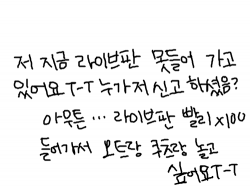 저 지금 라이브판 못들어 가고
있어요 T-T 누가 저 신고 하셨음?
아무튼 ... 라이브판 빨리 x100
들어가서 오트랑 쿠츠랑 놀고
싶어요 T-T